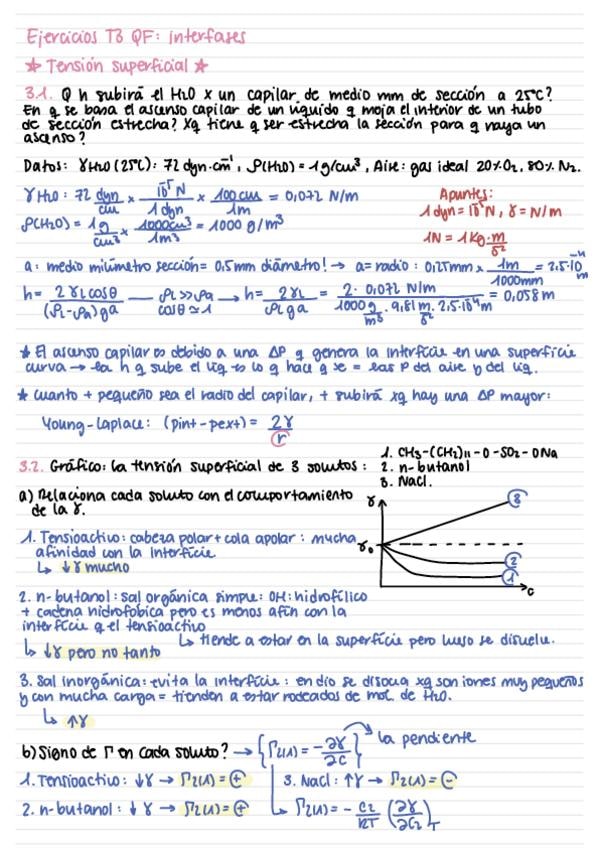 Ejercicios T3 QF: interfases
★ Tensión superficial ★
3.1. Q h subirá el H2O x un capilar de medio mm de sección a 25ºC?
En q se basa el ascenso capilar de un líquido q moja el interior de un tubo
de sección estrecha? Xq tiene q ser estrecha la sección para q haya un
ascenso?
Datos: γH2O (25ºC): 72 dyn·cm⁻¹, ρ(H2O) = 1g/cm³, Aire: gas ideal 20% O2, 80% N2.
γ H2O : 72 dyn/cm × 10⁻⁵ N/1 dyn × 100 cm/1m = 0,072 N/m
ρ(H2O) = 1g/cm³ × 1000cm³/1m³ = 1000 g/m³
Apuntes:
1 dyn = 10⁻⁵ N, γ = N/m
1N = 1 Kg·m/s²
a: medio milímetro sección = 0,5mm diámetro! → a = radio : 0,25mm × 1m/1000mm = 2,5·10⁻⁴ m
h = 2γL cosθ/(ρL-ρa)ga — ρL >> ρa cosθ ≃ 1 → h = 2γL/ρL ga = 2·0,072 N/m/1000 g/m³ · 9,81 m/s² · 2,5·10⁻⁴ m = 0,058 m
★ El ascenso capilar es debido a una ΔP q genera la interfície en una superfície
curva → la h q sube el líq es lo q hace q se = las P del aire y del líq.
★ Cuanto + pequeño sea el radio del capilar, + subirá xq hay una ΔP mayor:
Young-Laplace: (pint - pext) = 2γ/r
3.2. Gráfico: la tensión superficial de 3 solutos :
1. CH3-(CH2)11-O-SO2-ONa
2. n-butanol
3. NaCl.
a) Relaciona cada soluto con el comportamiento
de la γ.
γ
γ0
3
2
1
c
1. Tensioactivo : cabeza polar + cola apolar : mucha
afinidad con la interfície
↳ ↓γ mucho
2. n-butanol : sal orgánica simple: OH: hidrofílico
+ cadena hidrofóbica pero es menos afín con la
interfície q el tensioactivo
↳ tiende a estar en la superfície pero luego se disuelve.
↳ ↓γ pero no tanto
3. Sal inorgánica: evita la interfície : en dis se disocia xq son iones muy pequeños
y con mucha carga = tienden a estar rodeados de mol. de H2O.
↳ ↑γ
b) Signo de Γ en cada soluto? → {Γ2(1) = -∂γ/∂C} la pendiente
1. Tensioactivo: ↓γ → Γ2(1) = ⊕
3. NaCl: ↑γ → Γ2(1) = ⊖
2. n-butanol : ↓ γ → Γ2(1) = ⊕
↳ Γ2(1) = - C2/RT (∂γ/∂C2)T